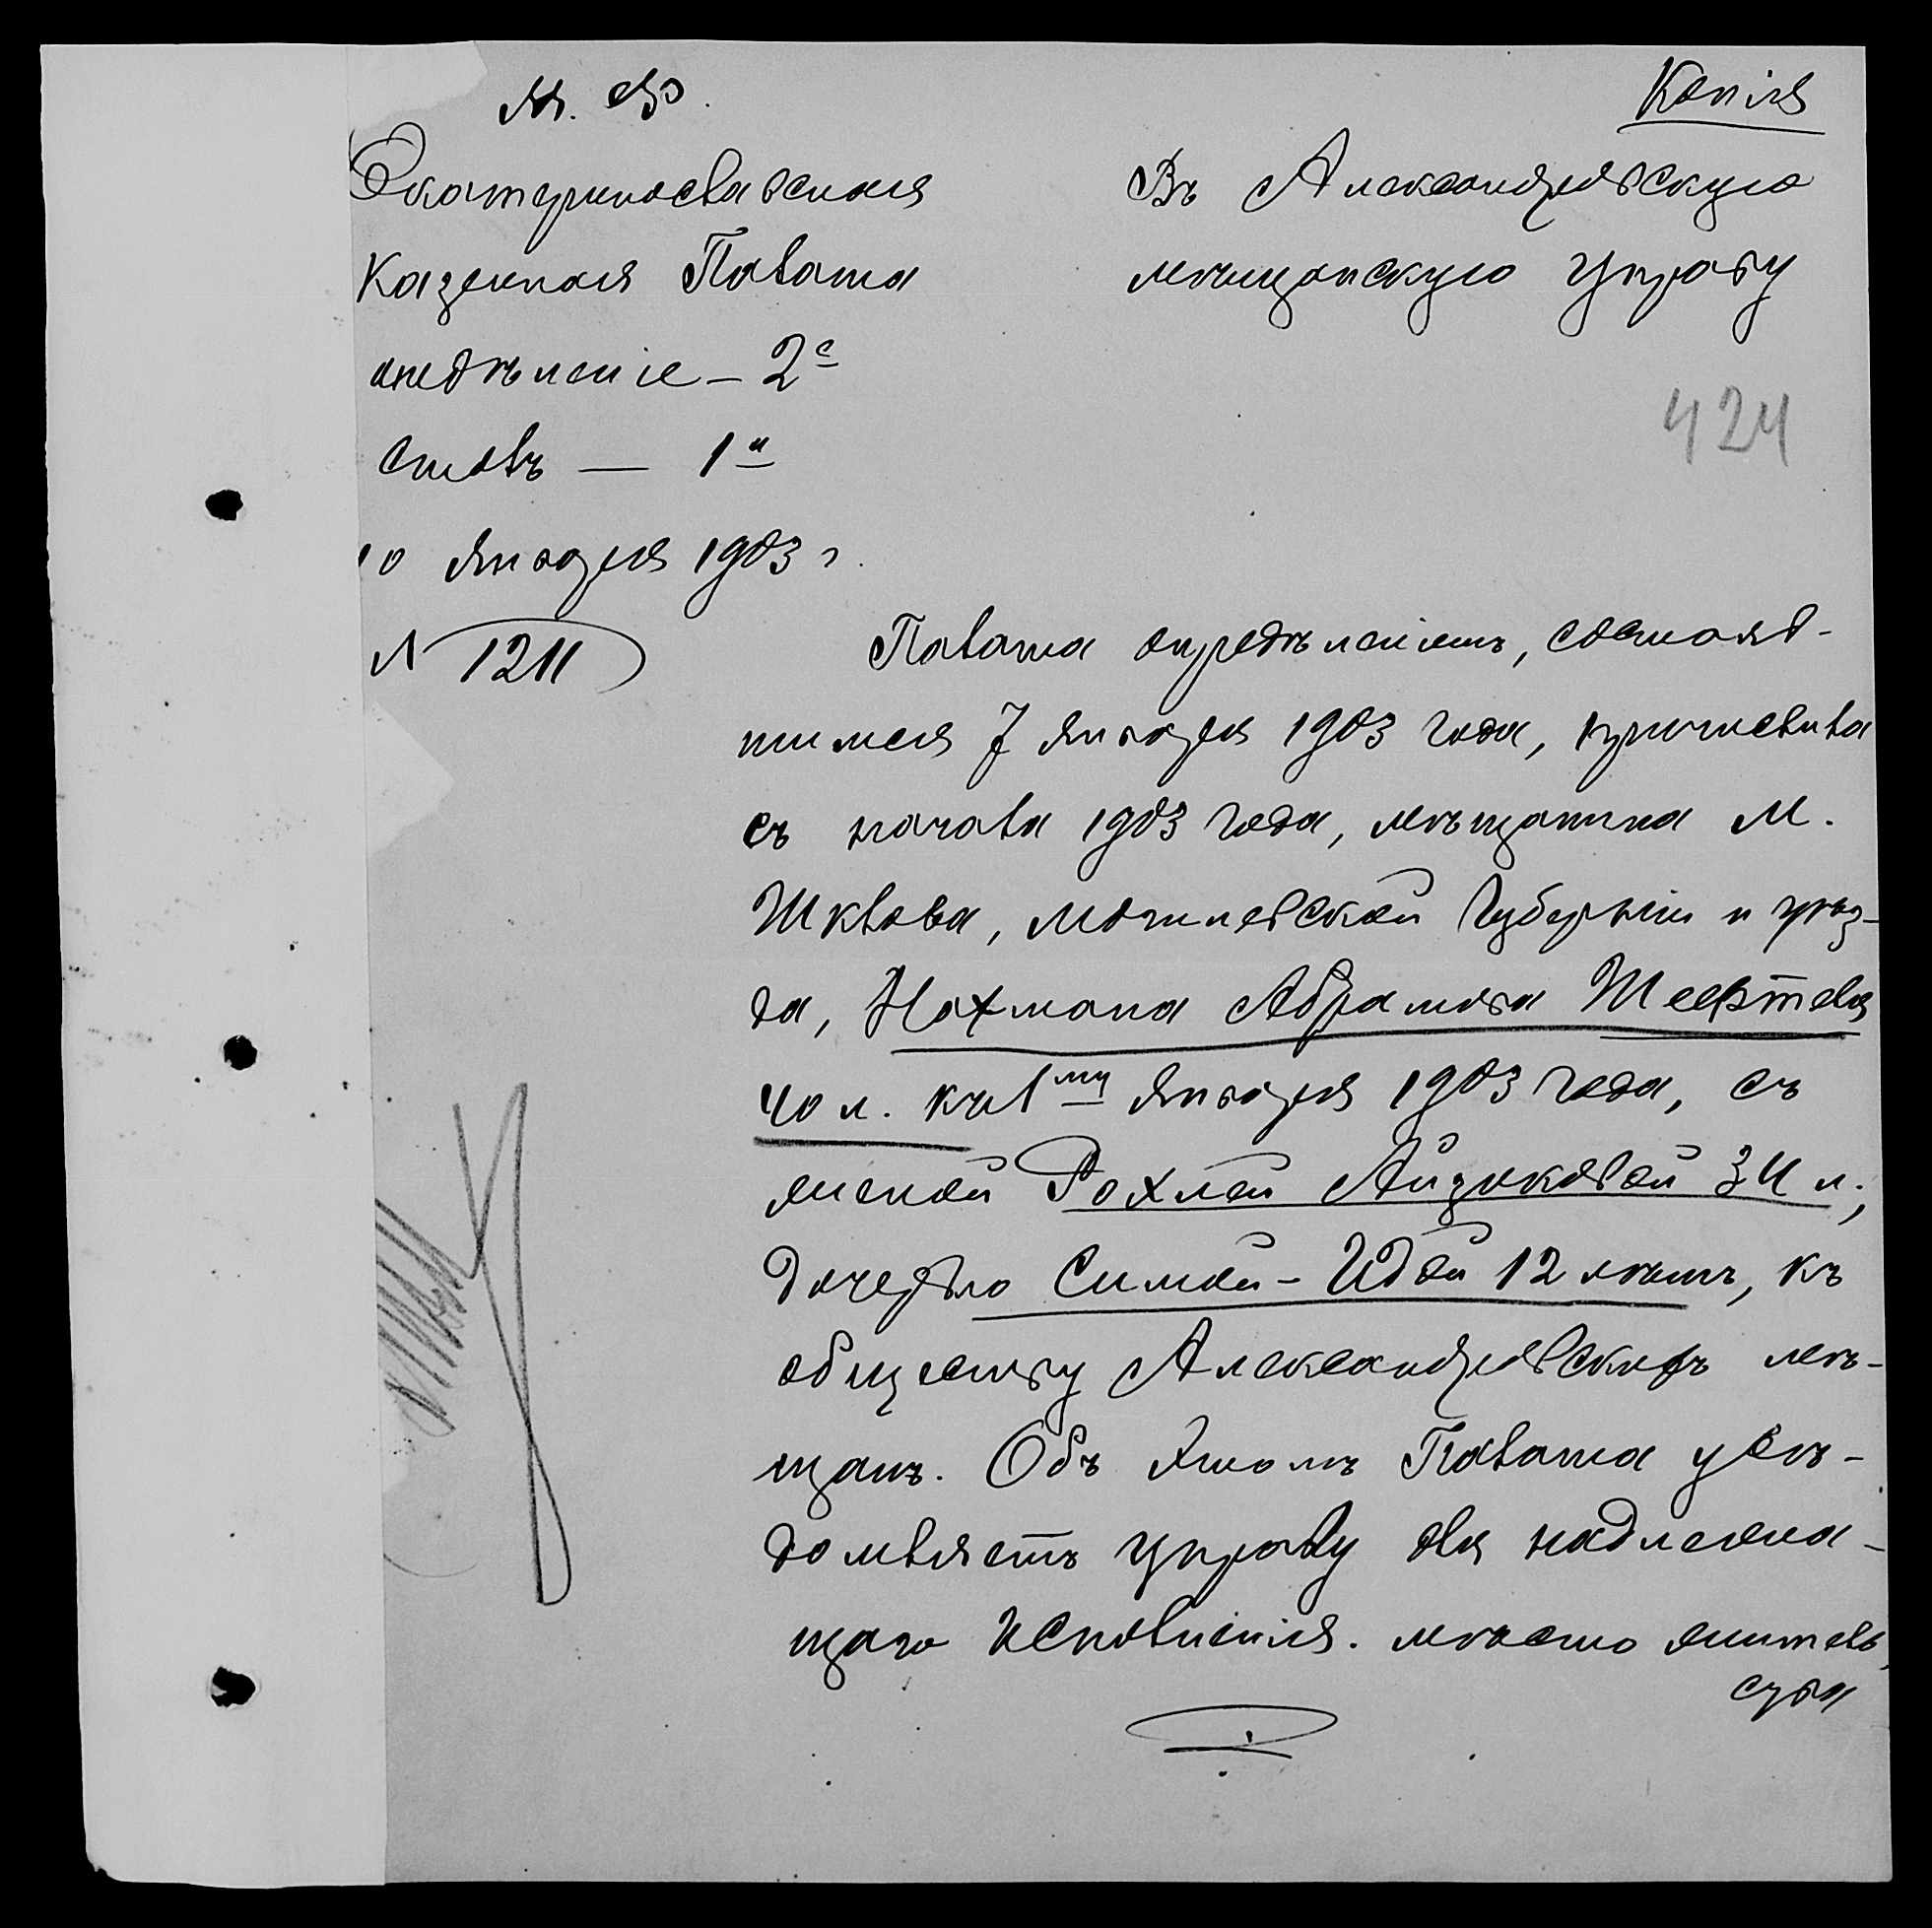 М. Ф.
Копія
Екатеринославская
Казенная Палата
отдѣленіе – 2е
столъ — 1й
10 Января 1903 г.
N 1211
Въ Александровскую
мѣщанскую Управу
424
Палата опредѣленіемъ, состояв-
шимся 7 Января 1903 года, причислила
съ начала 1903 года, мѣщанина м.
Шклова, Могилевской Губерніи и уѣз-
да, Нохмана Абрамова Шефтеля
40 л. къ 1му Января 1903 года, съ
женой Рохлей Айзиковой 34 л.,
дочерью Симой-Идой 12 лѣтъ, къ
обществу Александровскихъ мѣ-
щанъ. Объ этомъ Палата увѣ-
домляетъ Управу для надлежа-
щаго исполненія. мѣсто житель
ства